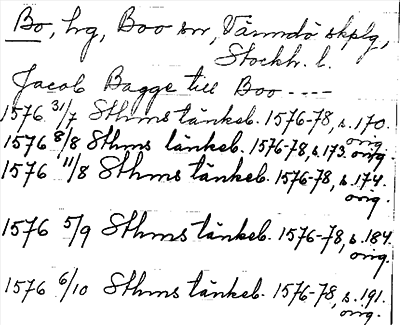 Bo, hg, Boo sn, Värmdö skplg,
Stockh. l.
Jacob Bagge till Boo ----
1576 31/7 Sthms tänkeb. 1576-78, s. 170.
orig.
1576 8/8 Sthms tänkeb. 1576-78, s. 173. orig.
1576 11/8 Sthms tänkeb. 1576-78, s. 174.
orig.
1576 5/9 Sthms tänkeb. 1576-78, s. 184.
orig.
1576 6/10 Sthms tänkeb. 1576-78, s. 191.
orig.